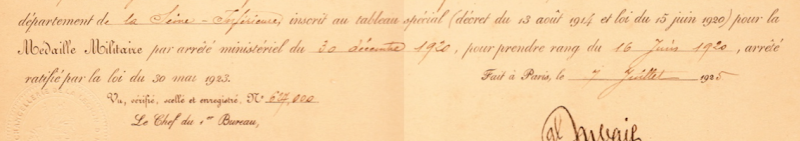 département de la Seine-Inférieure inscrit au tableau spécial (décret du 13 août 1914 et loi du 15 juin 1920) pour la
Medaille Militaire par arrêté ministériel du 30 décembre 1920, pour prendre rang du 16 Juin 1920, arrêté
ratifié par la loi du 30 mai 1923.
Fait à Paris, le 7 Juillet 1925
Vu, vérifié, scellé et enregistré. N° 627,000
Le Chef du 1er Bureau,